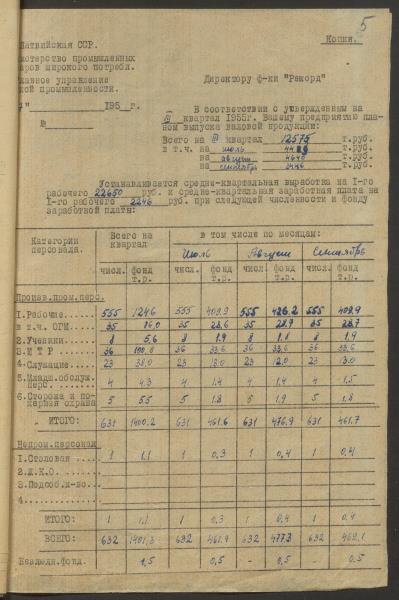 5
Латвийская ССР.
Копия.
Министерство промышленных
товаров широкого потребл.
Главное управление
промышленности.
Директору ф-ки "Рекорд"
" 195 г.
№
В соответствии с утвержденным на
III квартал 1955г. Вашему предприятию пла-
ном выпуска валовой продукции:
Всего на III квартал 12575 т.руб.
в т.ч. на июль т.руб.
на август 4640 т.руб.
на сентябрь т.руб.
Устанавливается средне-квартальная выработка на 1-го
рабочего 22650 руб. и средне-квартальная заработная плата на
1-го рабочего 2246 руб. при следующей численности и фонду
заработной платы:
Категории персонала. Всего на квартал в том числе по месяцам:
Июль Август Сентябрь
числ. фонд т.р. числ. фонд т.р. числ. фонд т.р. числ. фонд т.р.
Произв.пром.перс.
1.Рабочие..... 555 1246 555 409.9 555 426.2 555 409.9
в т.ч. ОРМ... 35 86,0 35 28.6 35 28.7 35 28.7
2.Ученики.... 8 5.6 8 1.9 8 1.8 8 1.9
3.И Т Р 36 100.8 36 33.6 36 33.6 36 33.6
4.Служащие.... 23 38.0 23 13.0 23 12.0 23 13.0
5.Младш.обслуж.
перс. 4 4.3 4 1.4 4 1.4 4 1.5
6.Сторожа и по-
жарная охрана 5 5.5 5 1.8 5 1.9 5 1.8
ИТОГО: 631 1400.2 631 461.6 631 476.9 631 461.7
Непром.персонал
1.Столовая.... 1 1.1 1 0,3 1 0,4 1 0,4
2.Ж.К.О.
3.Подсоб.х-во...
4.
ИТОГО: 1 1.1 1 0.3 1 0.4 1 0.4
ВСЕГО: 632 1401.3 632 461.9 632 477.3 632 462.1
Безлюдн.фонд. 1,5 0,5 - 0,5 0,5